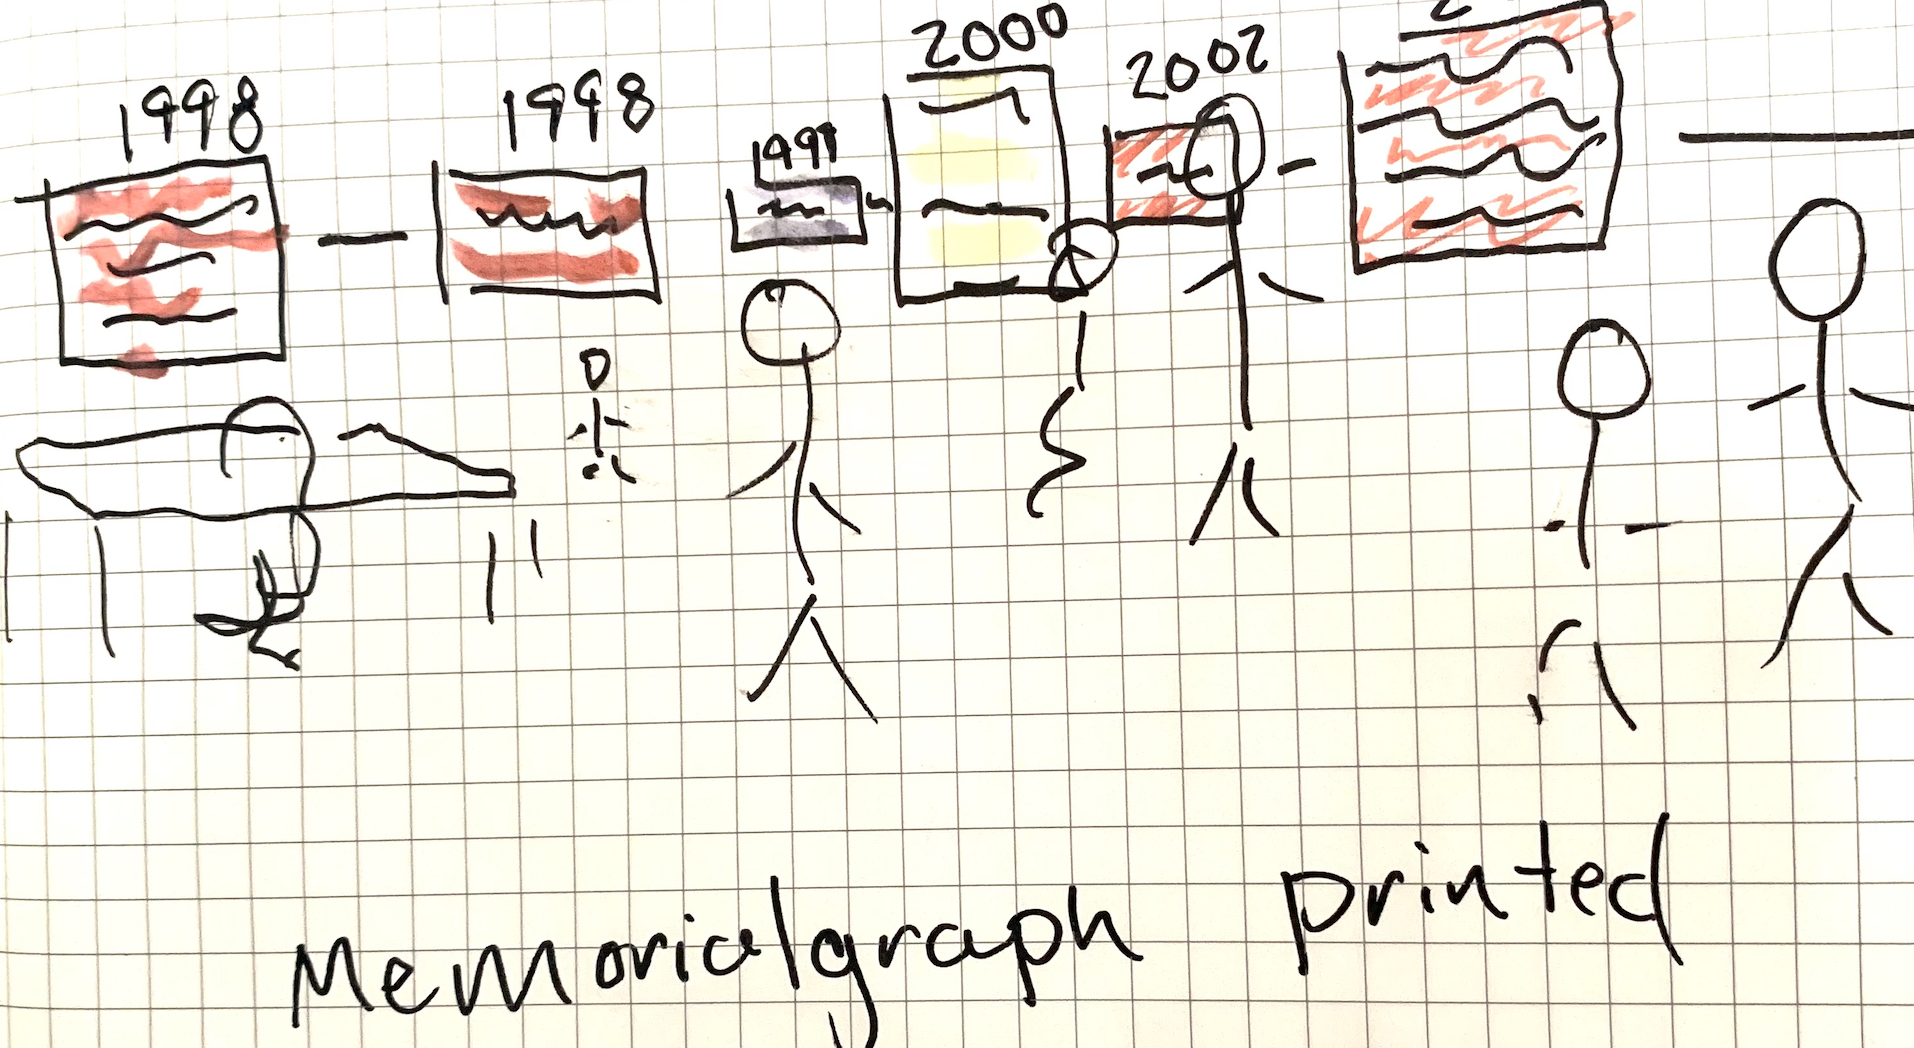 1998 1998 1999 2000 2002
Memorialgraph printed